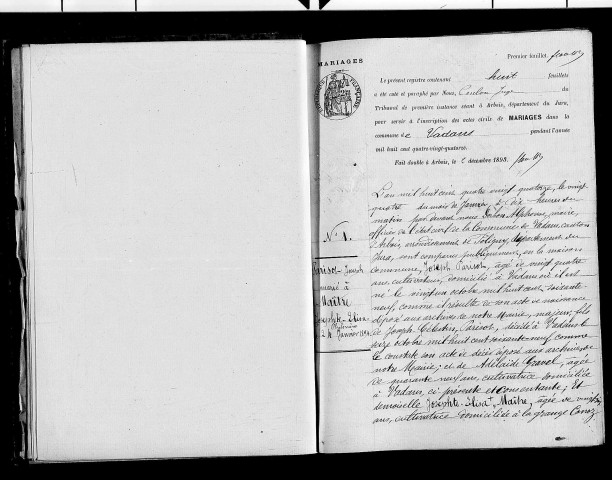 MARIAGES
Premier feuillet.
RÉPUBLIQUE FRANÇAISE
Le présent registre contenant huit feuillets
a été coté et paraphé par Nous, Coulon Juge du
Tribunal de première instance séant à Arbois, département du Jura,
pour servir à l'inscription des actes civils de MARIAGES dans la
commune de Vadans pendant l'année
mil huit cent quatre-vingt-quatorze.
Fait double à Arbois, le décembre 1893.
N° 1.
Parisot Joseph
marié à
Maître
Josephte-Elisa
24 Janvier 1894
L'an mil huit cent quatre vingt quatorze, le vingt
quatre du mois de Janvier, à dix heures du
matin par devant nous Alphonse, maire,
officier de l'état civil de la Commune de Vadans, canton
d'Arbois, arrondissement de Poligny, département du
Jura, sont comparus publiquement, en la maison
commune, Joseph Parisot, âgé de vingt quatre
ans, cultivateur, domicilié à Vadans où il est
né le vingt un octobre mil huit cent soixante
neuf, comme il résulte de son acte de naissance
déposé aux archives de notre Mairie, majeur, fils
de Joseph Célestin Parisot, décédé à Vadans le
onze octobre mil huit cent soixante-neuf comme
le constate son acte de décès déposé aux archives de
notre Mairie; et de Adélaïde Gravel, âgée
de quarante neuf ans, cultivatrice domiciliée
à Vadans, ci présente et consentante; Et
demoiselle Josephte-Elisa Maître, âgée de vingt
ans, cultivatrice domiciliée à la grange